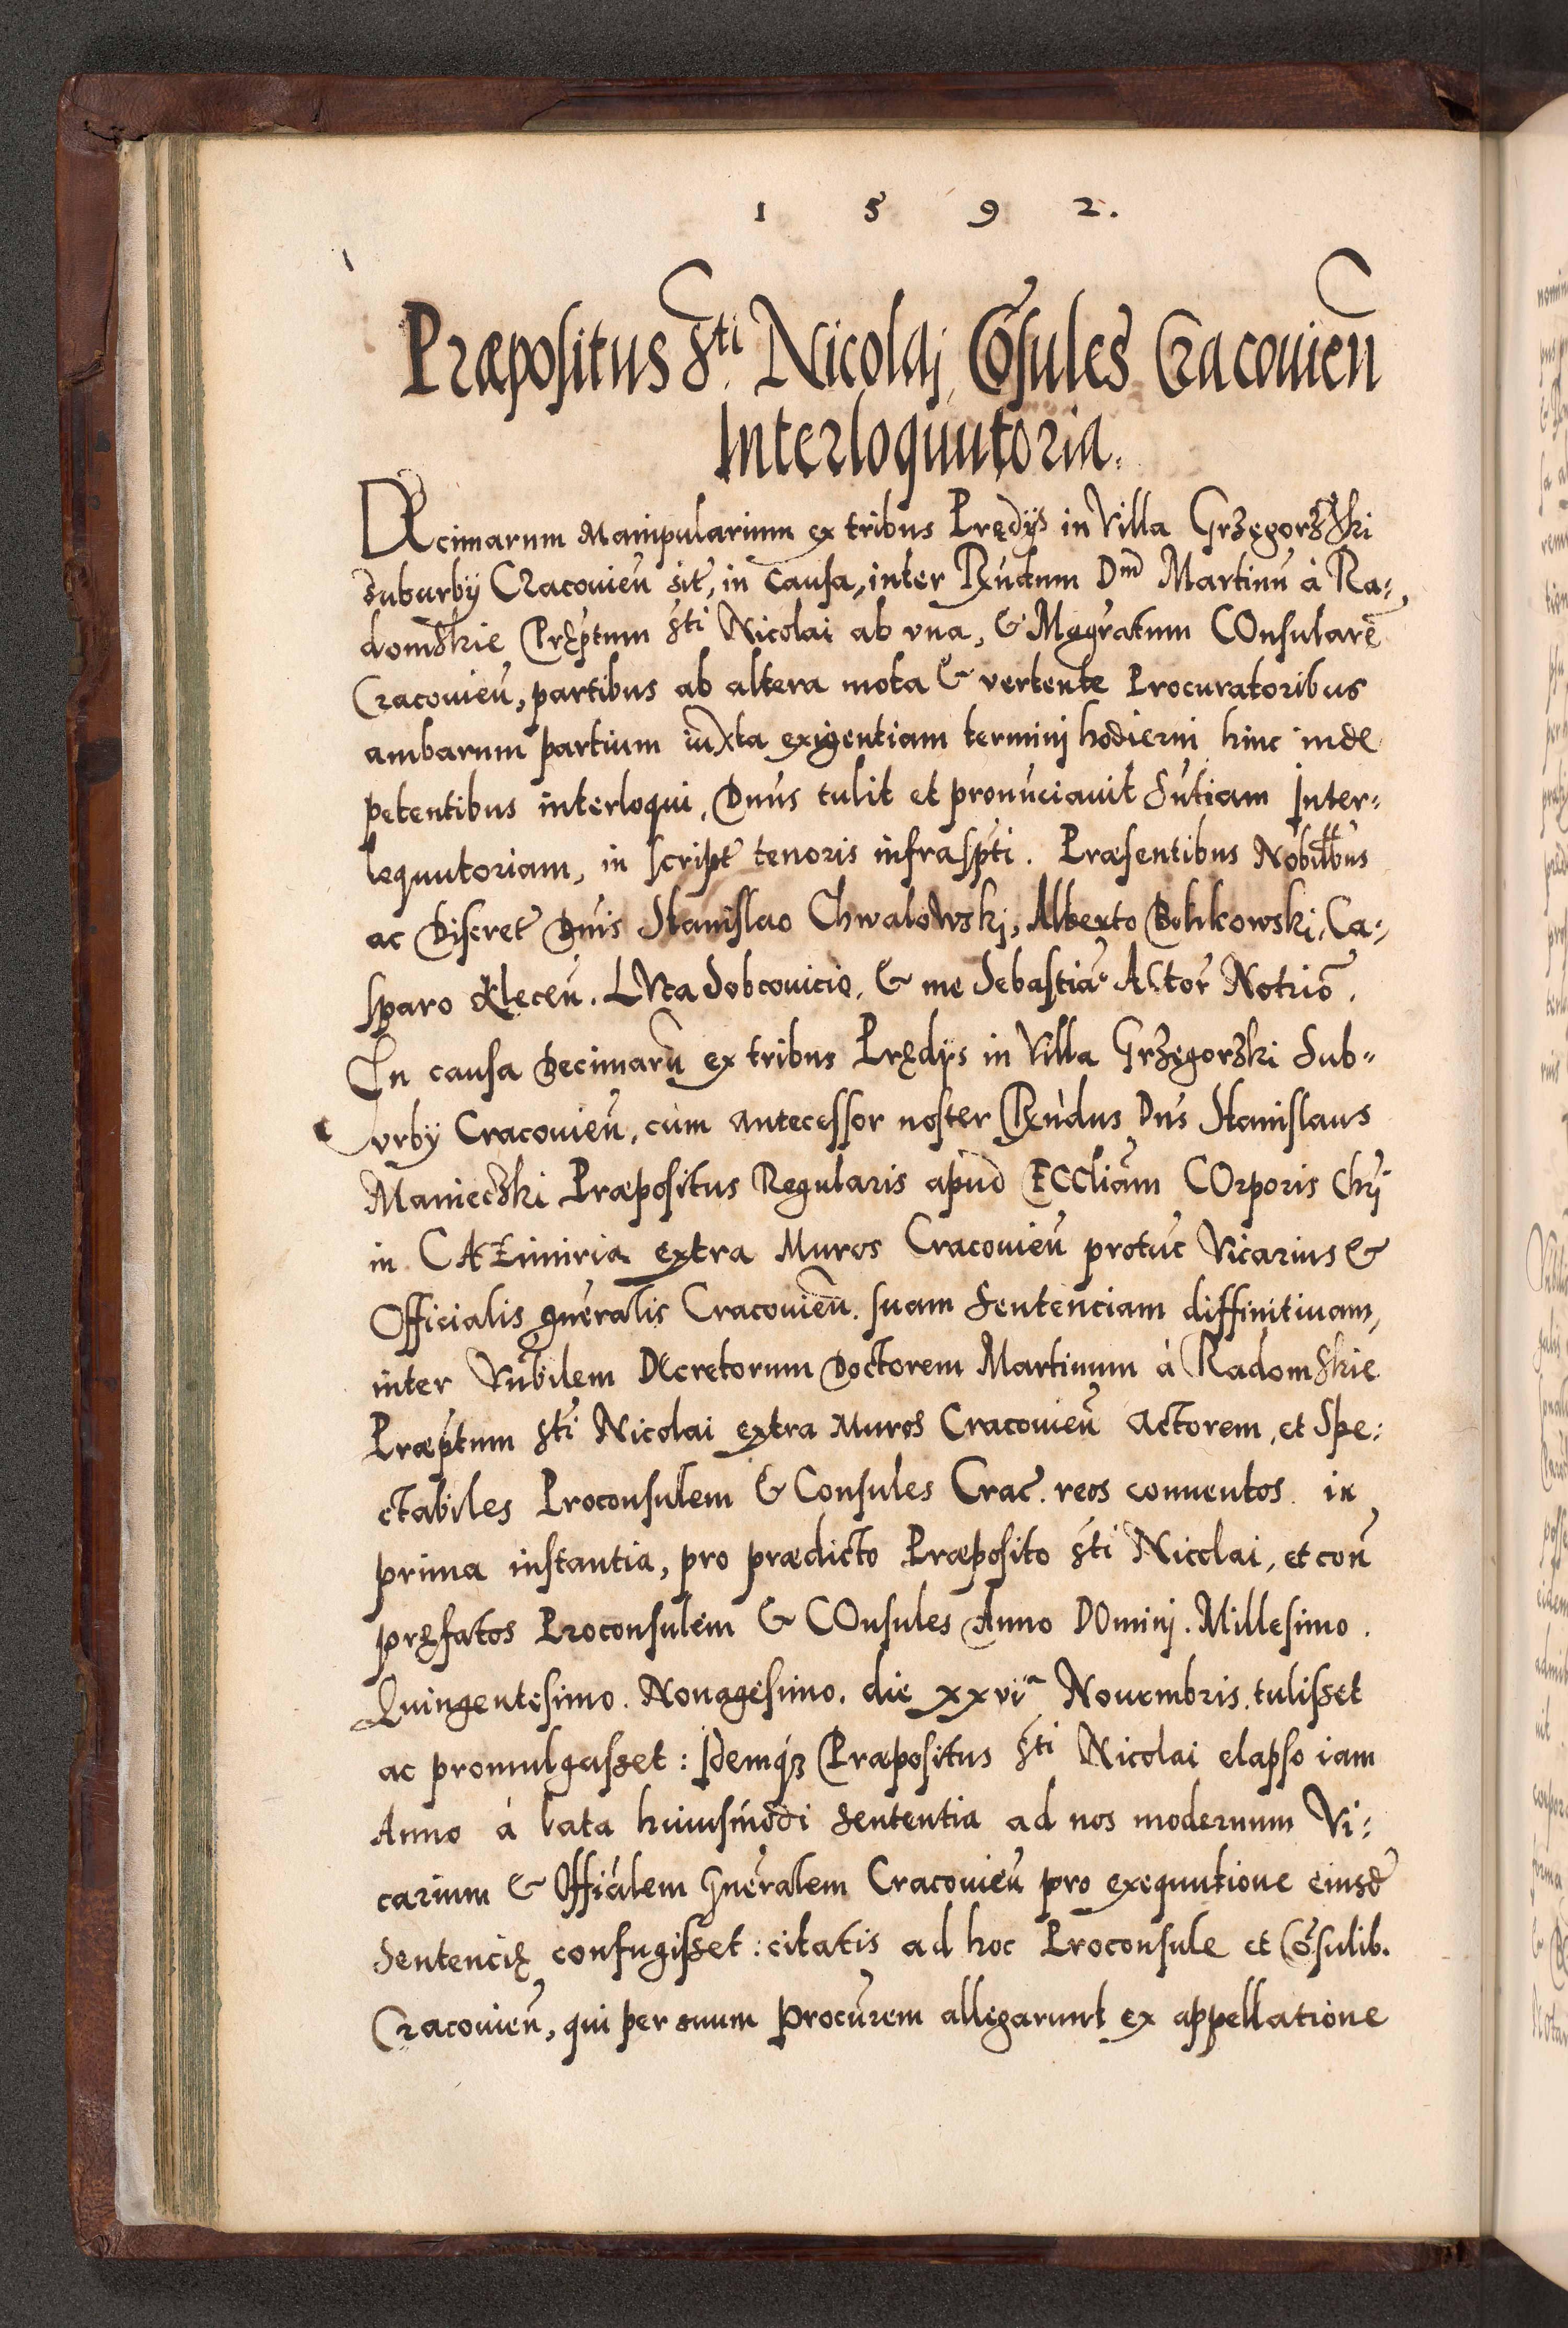 1 5 9 2.
Præpositus Sti Nicolaj Cõsules Cracouień
Interloquutoria.
DEcimarum Manipularium ex tribus Prędijs in Villa Grzęgorzski
suburbij CRacouień sit, in causa, inter Rńdum Dm Martinũ à Ra-
domskie Pręptum Sti Nicolai ab vna, & Magratum COnsularẽ
Cracouień, partibus ab altera mota & vertente Procuratoribus
ambarum partium iuxta exigentiam terminj hodierni hinc inde
petentibus interloqui, Dnus tulit et pronũciauit Sńtiam Inter-
lequutoriam, in script tenoris infraspti. Præsentibus Nobillbus
ac Discret Dnis Stanislao Chwalowskj, Alberto Bolikowski, Ca-
sparo Kleceń. LVca Sobcouicio, & me Sebastião ACtor Notriõ.
In causa Decimarũ ex tribus Prędijs in Villa Grzęgorzki Sub-
vrbij Cracouień, cùm antecessor noster Rńdus Dns Stanislaus
Manieczki Præpositus Regularis apud ECCliam COrporis Chrj
in CAZimiria extra Muros Cracouień protũc Vicarius &
Officialis gńeralis Cracouień. suam Sentenciam diffinitiuam,
inter Vńbilem DEcretorum Doctorem Martinum à Radomskie
Præptum Sti Nicolai extra Muros Cracouień Actorem, et Spe-
ctabiles Proconsulem & Consules Crac. reos conuentos. in
prima instantia, pro prædicto Præposito Sti Nicolai, et coń
pręfatos Proconsulem & COnsules Anno DOminj. Millesimo.
Quingentesimo. Nonagesimo. die xxvia Nouembris tulisset
ac promulgasset: Idemqʒ Præpositus Sti Nicolai elapso iam
Anno à lata huiusmõdi sententia ad nos modernum Vi-
carium & Offiálem Gńeralem Cracouień pro exequutione eiusd
Sentencię confugisset: citatis ad hoc Proconsule et Cõsulib.
Cracouień, qui per suum Procũrem allegarunt ex appellatione